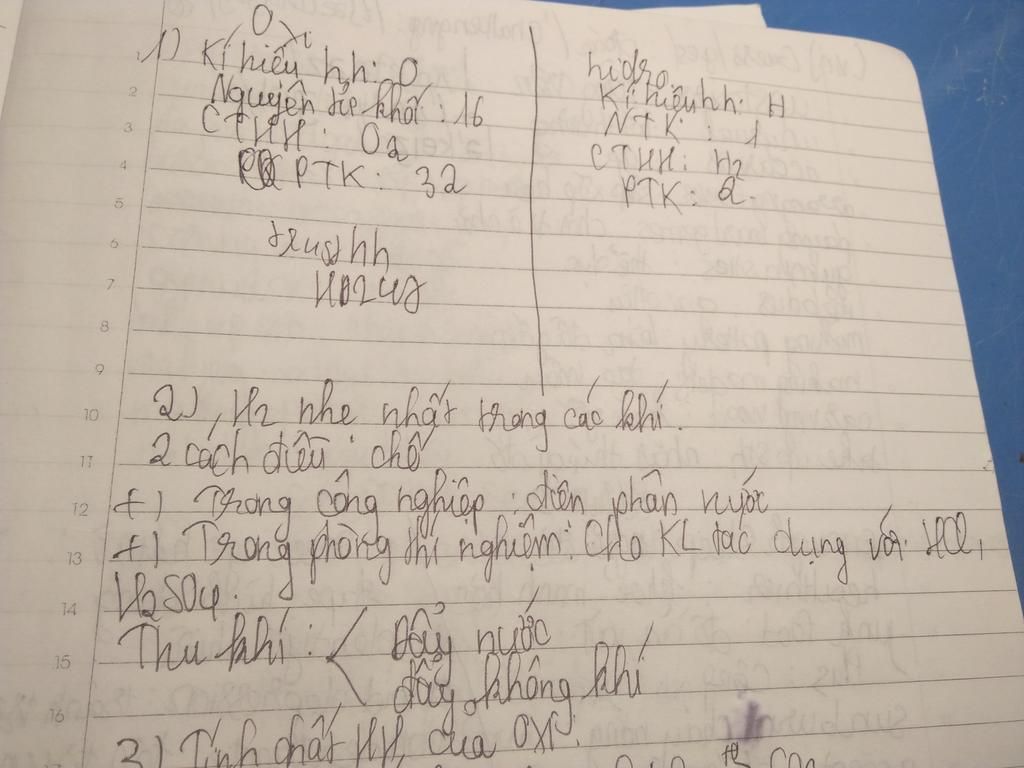 Oxi
1) Kí hiệu hh: O
Nguyên tử khối: 16
CTHH: O2
PTK: 32
hidro
Kí hiệu hh: H
NTK: 1
CTHH: H2
PTK: 2.
2), H2 nhẹ nhất trong các khí.
2 cách điều chế
+) Trong công nghiệp: điện phân nước
+) Trong phòng thí nghiệm: Cho KL tác dụng với HCl,
H2SO4.
Thu khí: < Đẩy nước
đẩy không khí
3) Tính chất HH của OXI: